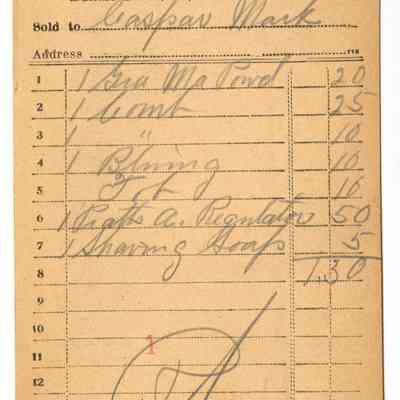 Sold to Caspar Mark
Address
1 1 Ma Powd 20
2 1 Comt 25
3 1 " 10
4 1 Bluing 10
5 Tob 10
6 1 Pratts A. Regulator 50
7 1 Shaving Soap 5
8 1.30
9
10
11 1
12